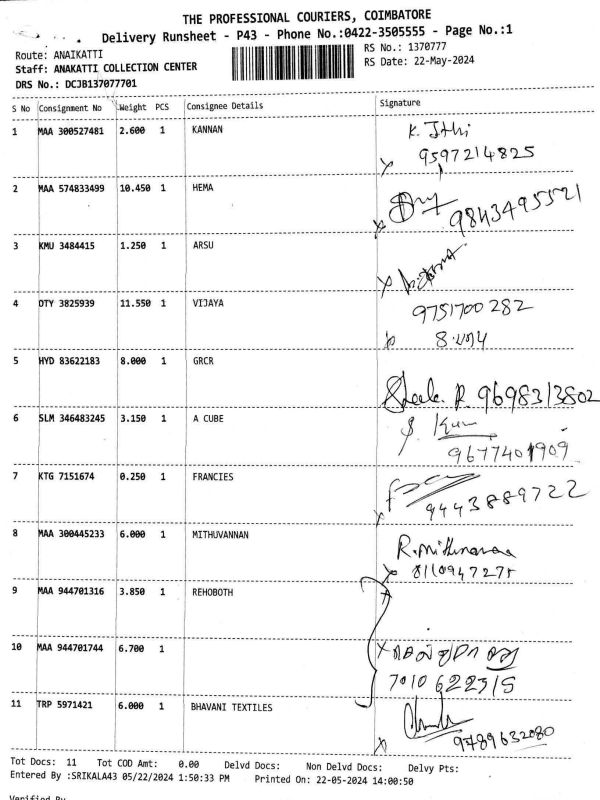 THE PROFESSIONAL COURIERS, COIMBATORE
Delivery Runsheet - P43 - Phone No.:0422-3505555 - Page No.:1
Route: ANAIKATTI RS No.: 1370777
Staff: ANAKATTI COLLECTION CENTER RS Date: 22-May-2024
DRS No.: DCJB137077701
S No Consignment No Weight PCS Consignee Details Signature
1 MAA 300527481 2.600 1 KANNAN
9597214825
2 MAA 574833499 10.450 1 HEMA
9843495521
3 KMU 3484415 1.250 1 ARSU
4 OTY 3825939 11.550 1 VIJAYA
9751700282
5 HYD 83622183 8.000 1 GRCR
R. 9698313802
6 SLM 346483245 3.150 1 A CUBE
9677401909
7 KTG 7151674 0.250 1 FRANCIES
9443889722
8 MAA 300445233 6.000 1 MITHUVANNAN
9 MAA 944701316 3.850 1 REHOBOTH
10 MAA 944701744 6.700 1
11 TRP 5971421 6.000 1 BHAVANI TEXTILES
9789632080
Tot Docs: 11 Tot COD Amt: 0.00 Delvd Docs: Non Delvd Docs: Delvy Pts:
Entered By :SRIKALA43 05/22/2024 1:50:33 PM Printed On: 22-05-2024 14:00:50
Verified By